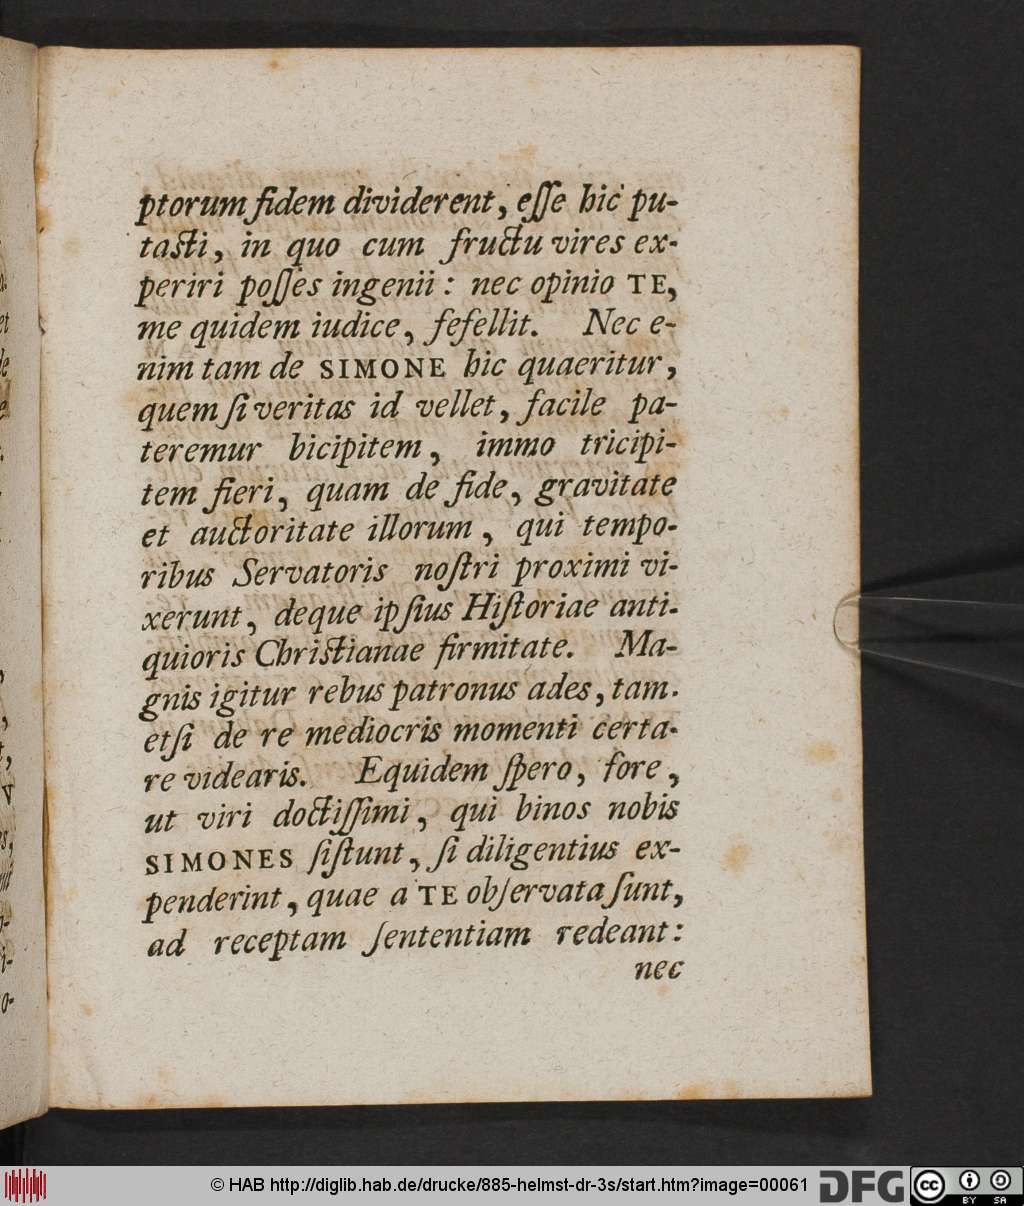 ptorum fidem dividerent, eſſe hic pu-
taſti, in quo cum fructu vires ex-
periri poſſes ingenii: nec opinio TE,
me quidem iudice, fefellit. Nec e-
nim tam de SIMONE hic quaeritur,
quem ſi veritas id vellet, facile pa-
teremur bicipitem, immo tricipi-
tem fieri, quam de fide, gravitate
et auctoritate illorum, qui tempo-
ribus Servatoris noſtri proximi vi-
xerunt, deque ipſius Hiſtoriae anti-
quioris Chriſtianae firmitate. Ma-
gnis igitur rebus patronus ades, tam-
etſi de re mediocris momenti certa-
re videaris. Equidem ſpero, fore,
ut viri doctiſſimi, qui binos nobis
SIMONES ſiſtunt, ſi diligentius ex-
penderint, quae a TE obſervata ſunt,
ad receptam ſententiam redeant:
nec
© HAB http://diglib.hab.de/drucke/885-helmst-dr-3s/start.htm?image=00061
DFG
cc BY SA